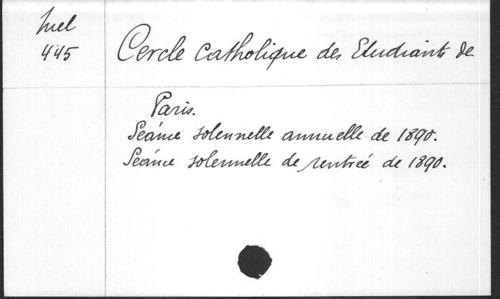 Mel
445
Cercle catholique des Etudiants de
Paris.
Séance solennelle annuelle de 1890.
Séance solennelle de rentrée de 1890.